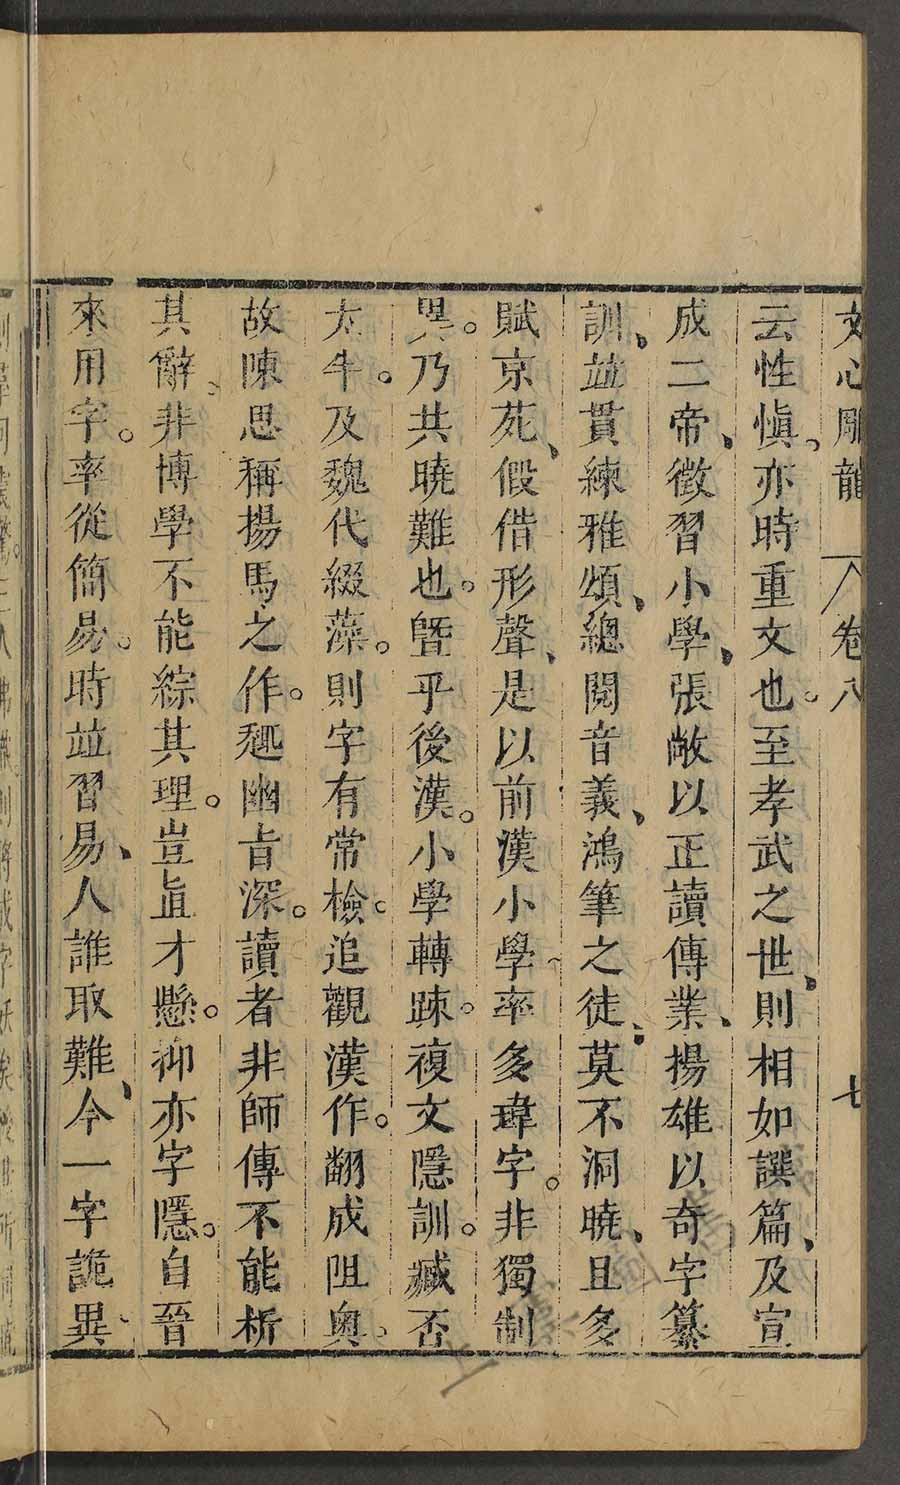 文心雕龍 卷八 七
云性慎。亦時重文也。至孝武之世、則相如譔篇、及宣
成二帝、徵習小學、張敞以正讀傳業、揚雄以奇字纂
訓、並貫練雅頌、總閱音義、鴻筆之徒、莫不洞曉、且多
賦京苑、假借形聲、是以前漢小學率多瑋字。非獨制
異。乃共曉難也。曁乎後漢。小學轉疎。複文隱訓。臧否
太半。及魏代綴藻。則字有常檢。追觀漢作。翻成阻奧。
故陳思稱揚馬之作。趣幽㫖深。讀者非師傳不能析
其辭、非博學不能綜其理。豈直才懸。抑亦字隱。自晉
來用字。率從簡易。時並習易、人誰取難、今一字詭異、